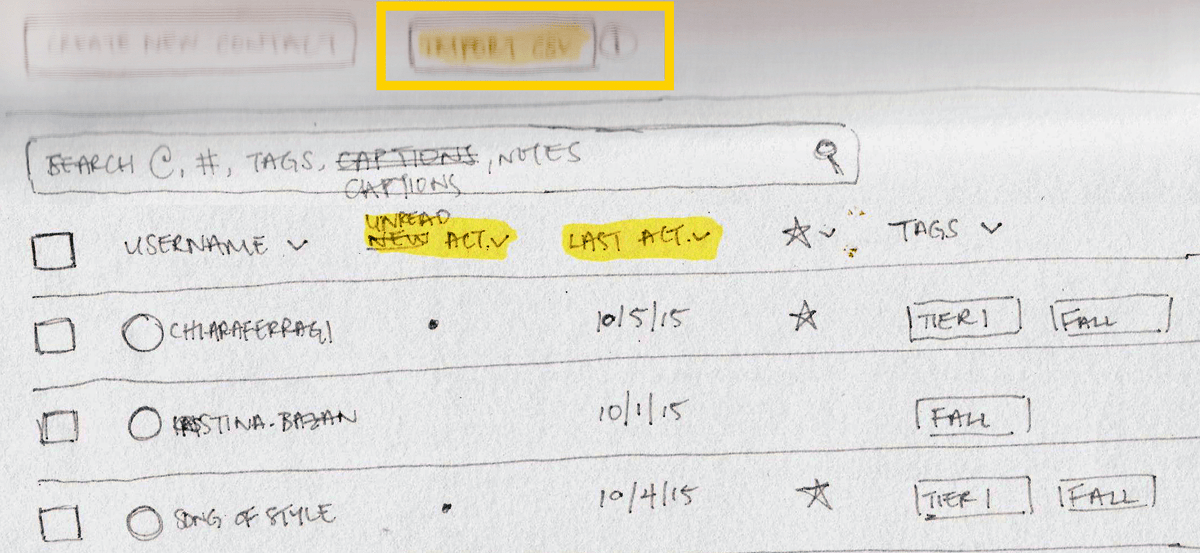 CREATE NEW CONTACT IMPORT CSV
SEARCH @, #, TAGS, CAPTIONS, NOTES
CAPTIONS
UNREAD
USERNAME NEW ACT. LAST ACT. TAGS
CHIARAFERRAGI 10/5/15 TIER 1 FALL
10/1/15 FALL
SONG OF STYLE 10/4/15 TIER 1 FALL